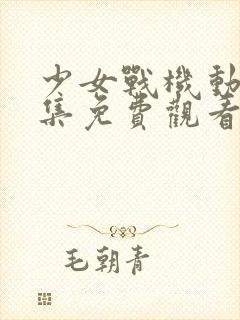 少女戰機動
集免費觀看
毛朝青